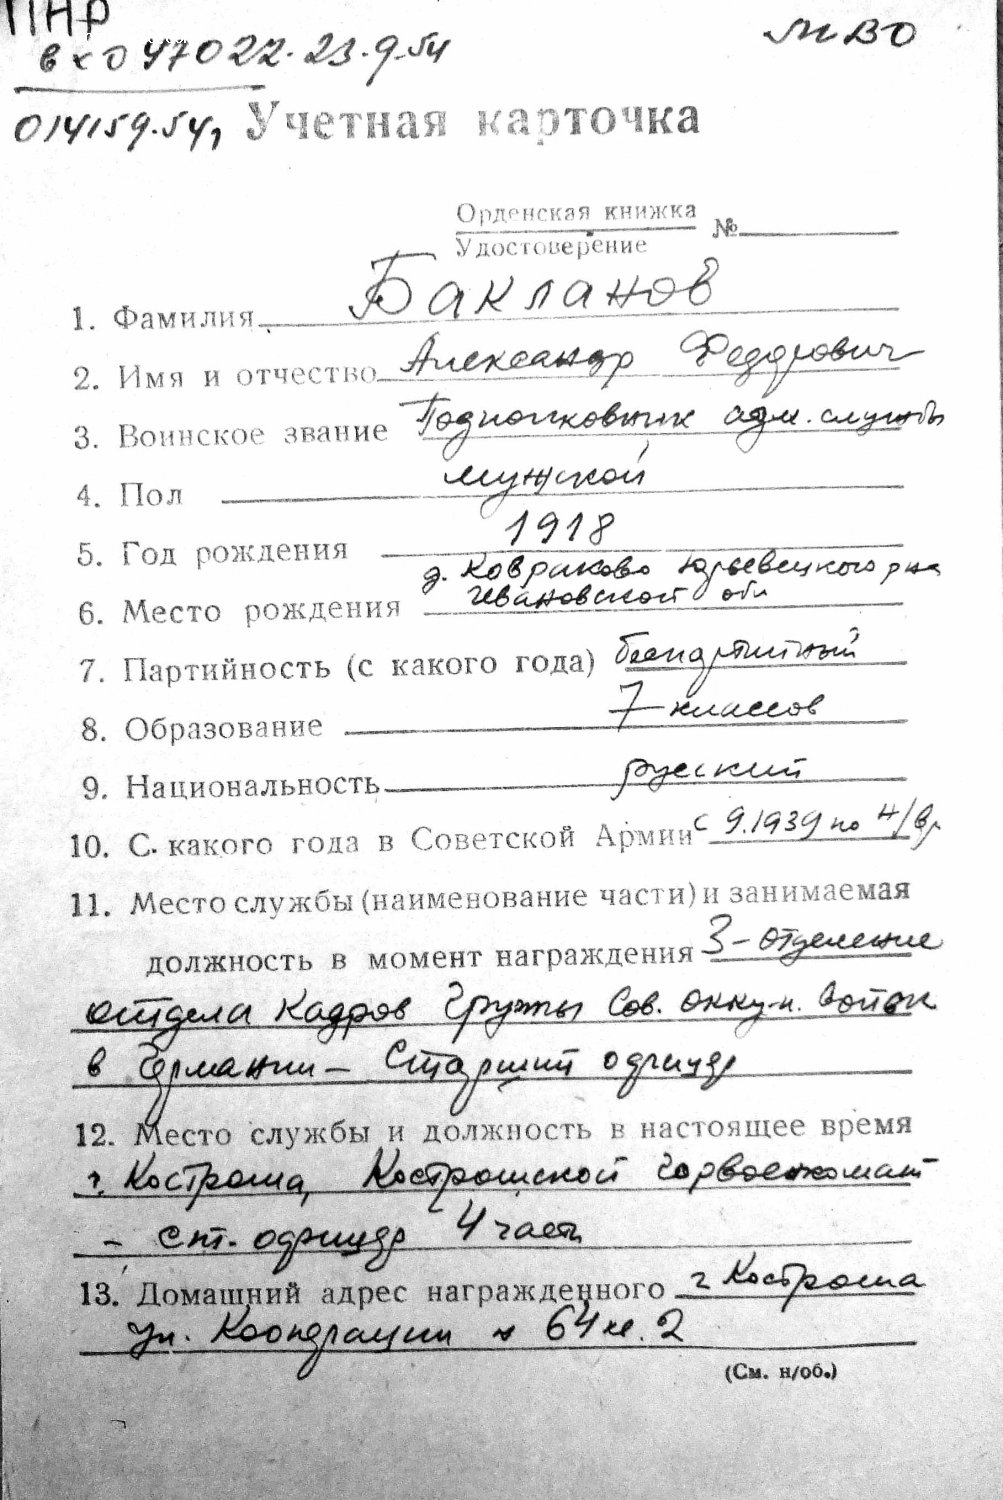 ПНР
вх 047022. 23.9.54
МВО
014159.54г
Учетная карточка
Орденская книжка
Удостоверение
№
1. Фамилия Бакланов
2. Имя и отчество Александр Федорович
3. Воинское звание Подполковник адм. службы
4. Пол мужской
5. Год рождения 1918
д. Ковриково Юрьевецкого р-на
6. Место рождения Ивановской обл
7. Партийность (с какого года) беспартийный
8. Образование 7 классов
9. Национальность русский
10. С какого года в Советской Армии с 9.1939 по н/вр
11. Место службы (наименование части) и занимаемая
должность в момент награждения 3-отделение
отдела кадров Группы Сов. оккуп. войск
в Германии – Старший офицер
12. Место службы и должность в настоящее время
г. Кострома, Костромской горвоенкомат
– ст. офицер 4 части
13. Домашний адрес награжденного г Кострома
ул. Кооперации 64 кв. 2
(См. н/об.)